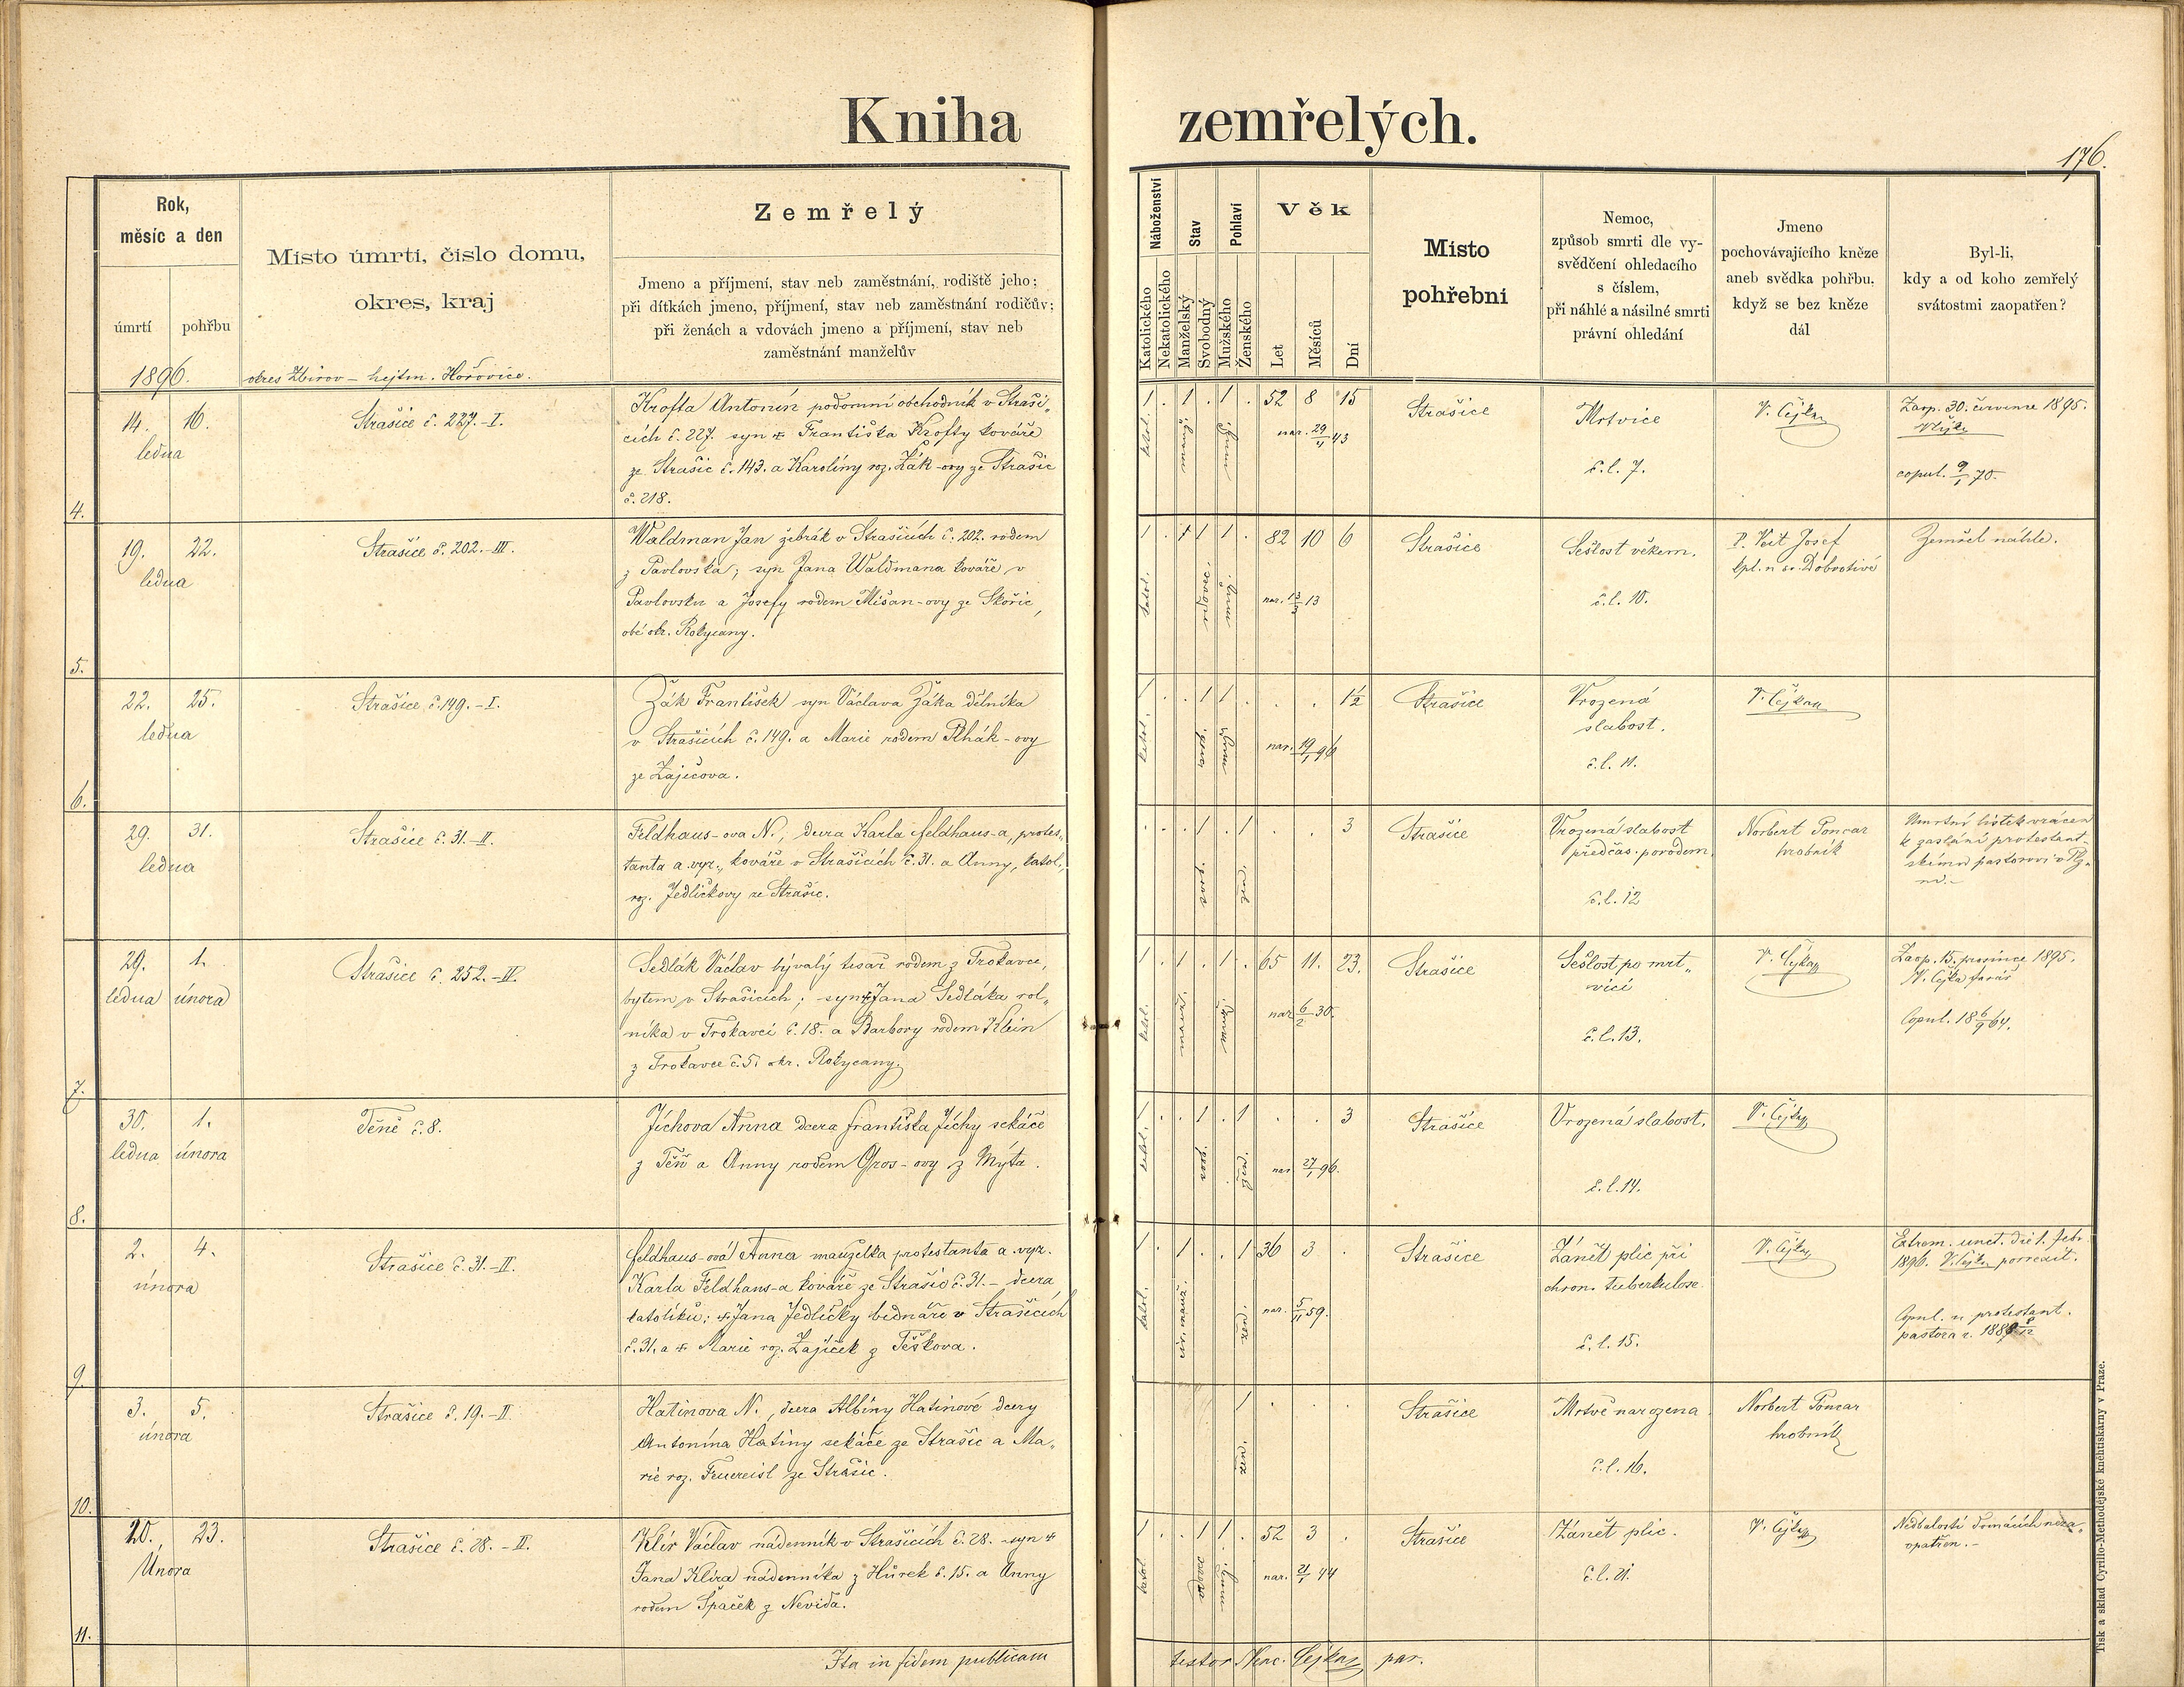 Kniha zemřelých.
176.
Rok,
měsíc a den
úmrtí pohřbu
1896.
Místo úmrtí, číslo domu,
okres, kraj
okres Zbirov – hejtm. Hořovice.
Zemřelý
Jmeno a příjmení, stav neb zaměstnání, rodiště jeho;
při dítkách jmeno, příjmení, stav neb zaměstnání rodičův;
při ženách a vdovách jmeno a příjmení, stav neb
zaměstnání manželův
Náboženství
Katolického
Nekatolického
Stav
Manželský
Svobodný
Pohlaví
Mužského
Ženského
Věk
Let
Měsíců
Dní
Místo
pohřební
Nemoc,
způsob smrti dle vy-
svědčení ohledacího
s číslem,
při náhlé a násilné smrti
právní ohledání
Jmeno
pochovávajícího kněze
aneb svědka pohřbu,
když se bez kněze
dál
Byl-li,
kdy a od koho zemřelý
svátostmi zaopatřen?
4.
14. 16.
ledna
Strašice č. 227.-I.
Krofta Antonín podomní obchodník v Straši„
cích č. 227. syn † Františka Krofty kováře
ze Strašic č. 143. a Karolíny roz. Žák-ovy ze Strašic
č. 218.
1 . 1 . 1 . 52 8 15
katol.
nar. 29/4 43
Strašice
Mrtvice
č. l. 7.
V. Čejka
Zaop. 30. července 1895.
copul. 9/1 70.
5.
19. 22.
ledna
Strašice č. 202.-III.
Waldman Jan žebrák v Strašicích č. 202. rodem
z Pavlovska; syn Jana Waldmana kováře v
Pavlovsku a Josefy rodem Mišan-ovy ze Skořic,
obé okr. Rokycany.
82 10 6
katol.
nar. 13/3 13
Strašice
Sešlost věkem.
č. l. 10.
P. Veit Josef
kpl. u sv. Dobrotivé
Zemřel náhle.
6.
22. 25.
ledna
Strašice č. 149.-I.
Žák František syn Václava Žáka dělníka
v Strašicích č. 149. a Marie rodem Rhák-ovy
ze Zaječova.
1 . . 1 1 . . . 1½
katol.
nar. 19/1 96
Strašice
Vrozená
slabost.
č. l. 11.
V. Čejka
29. 31.
ledna
Strašice č. 31.-II.
Feldhaus-ova N., dcera Karla Feldhaus-a, protes„
tanta a. vyz., kováře v Strašicích č. 31. a Anny, katol.,
roz. Jedličkovy ze Strašic.
. . . 1 . 1 . . 3
Strašice
Vrozená slabost
předčas. porodem.
č. l. 12
Norbert Poncar
hrobník
Úmrtní lístek vrácen
k zaslání protestant-
skému pastorovi v Plz„
ni.
7.
29. 1.
ledna února
Strašice č. 252.-IV.
Sedlák Václav bývalý tesař rodem z Trokavce,
bytem v Strašicích; syn † Jana Sedláka rol„
níka v Trokavci č. 18. a Barbory rodem Klein
z Trokavce č. 5. okr. Rokycany.
1 . 1 . 1 . 65 11. 23.
katol.
nar 6/2 30.
Strašice
Sešlost po mrt„
vici
č. l. 13.
V. Čejka
Zaop. 15. prosince 1895.
V. Čejka farář
Copul. 18 6/9 64.
8.
30. 1.
ledna února
Těně č. 8.
Jíchova Anna dcera Františka Jíchy sekáče
z Těň a Anny rodem Gros-ovy z Mýta.
1 . . 1 . 1 . . 3
katol.
nar 27/1 96.
Strašice
Vrozená slabost.
č. l. 14.
V. Čejka
9.
2. 4.
února
Strašice č. 31.-II.
Feldhaus-ová Anna manželka protestanta a. vyz.
Karla Feldhaus-a kováře ze Strašic č. 31. – dcera
katolíků: † Jana Jedličky bednáře v Strašicích
č. 31. a † Marie roz. Zajíček z Těškova.
1 . 1 . . 1 36 3 .
katol.
nar. 5/11 59.
Strašice
Zánět plic při
chron. tuberkulose
č. l. 15.
V. Čejka
Extrem. unct. die 1. febr.
1896. V. Čejka porrexit.
Copul. u protestant.
pastora r.
10.
3. 5.
února
Strašice č. 19.-II.
Hatinova N., dcera Albíny Hatinové dcery
Antonína Hatiny sekáče ze Strašic a Ma„
rie roz. Feuereisl ze Strašic.
1 . . .
Strašice
Mrtvě narozena
č. l. 16.
Norbert Poncar
hrobník
11.
20. 23.
Února
Strašice č. 28.-II.
Klír Václav nádenník v Strašicích č. 28. syn †
Jana Klíra nádenníka z Hůrek č. 15. a Anny
rodem Špaček z Nevida.
1 . . 1 1 . 52 3 .
katol.
nar. 21/1 44
Strašice
Zánět plic.
č. l. 21.
V. Čejka
Nedbalostí domácích neza„
opatřen.
Ita in fidem publicam testor Venc. Čejka par.
Tisk a sklad Cyrillo-Methodějské kněhtiskárny v Praze.